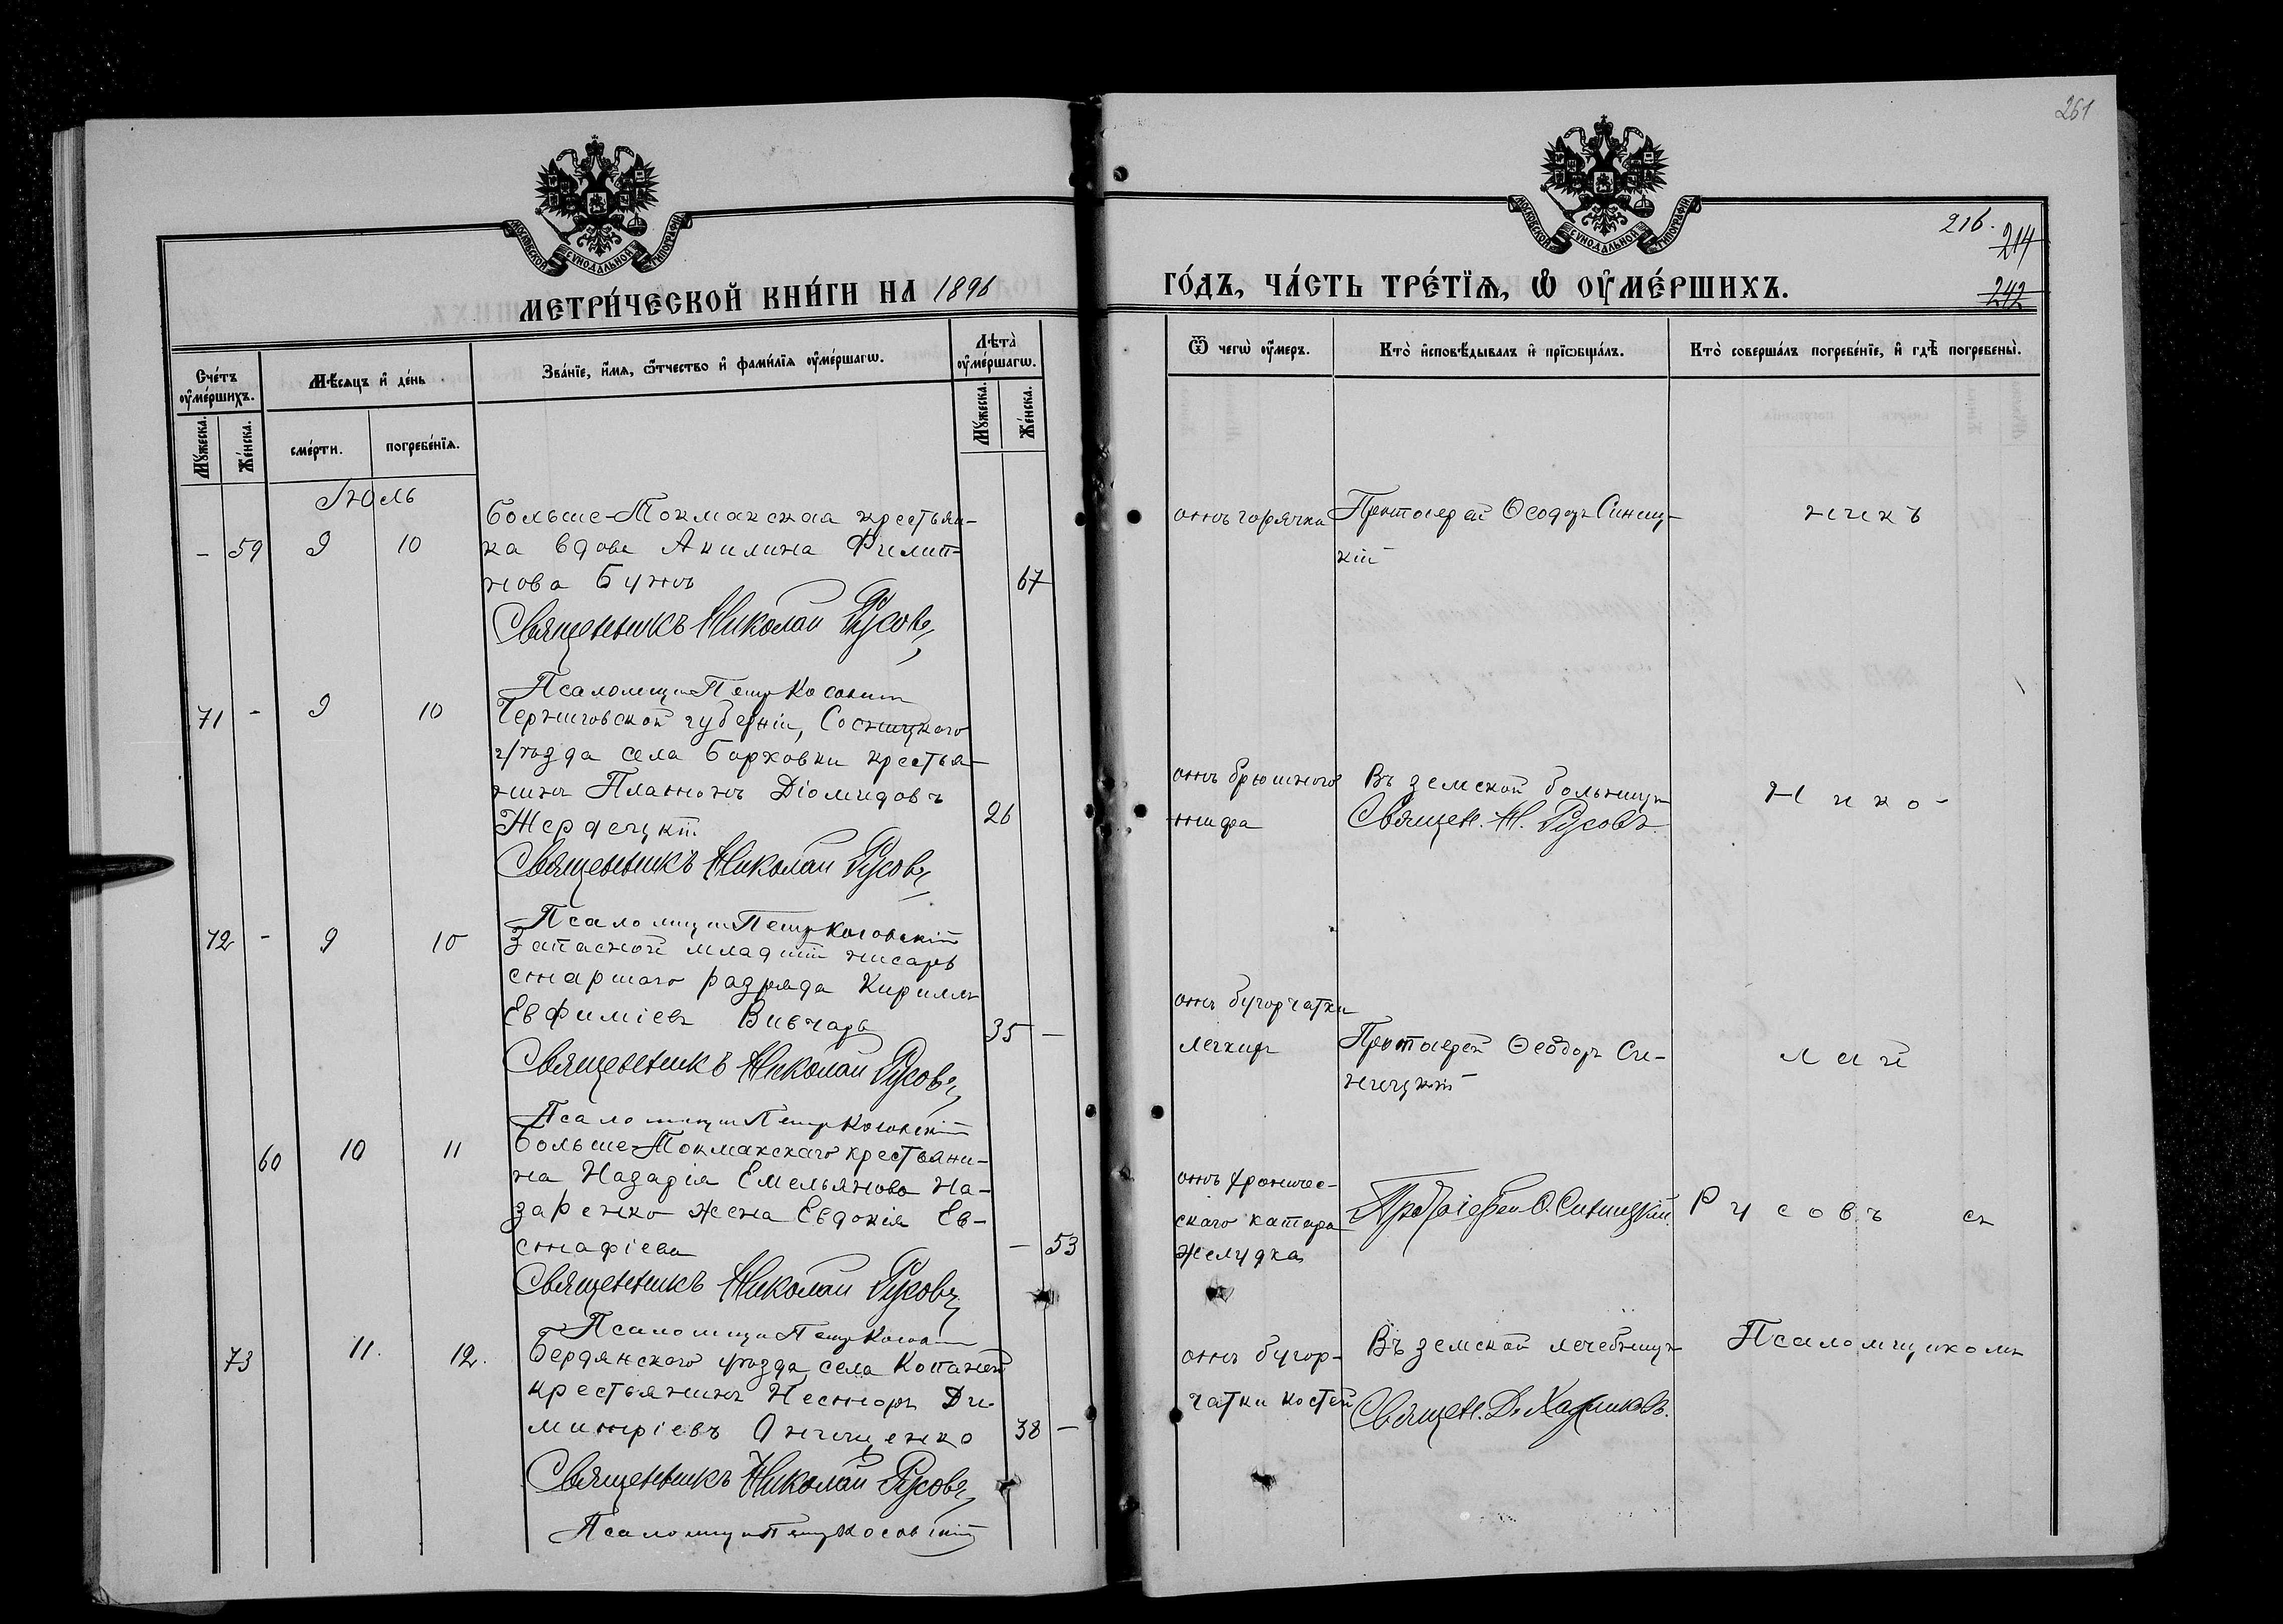 261
МОСКОВСКОЙ СѴНОДАЛЬНОЙ ТИПОГРАФІИ
МОСКОВСКОЙ СѴНОДАЛЬНОЙ ТИПОГРАФІИ
216.
214
242
МЕТРИ́ЧЕСКОЙ КНИ́ГИ НА 1896
ГО́ДЪ, ЧА́СТЬ ТРЕ́ТЇѦ, Ѡ҆ ОУ҆МЕ́РШИХЪ.
Сче́тъ оу҆ме́ршихъ.
Мѣ́сѧцъ и҆ де́нь
Зва́нїе, и҆́мѧ, ѻ҆́тчество и҆ фамѝлїѧ оу҆ме́ршагѡ.
Лѣта̀ оу҆ме́ршагѡ.
Мꙋ́жеска.
Же́нска.
сме́рти.
погребе́нїѧ.
Мꙋ́жеска.
Же́нска.
Ѿ чегѡ̀ оу҆́меръ.
Кто̀ и҆сповѣ́дывалъ и҆ прїѡбща́лъ.
Кто̀ соверша́лъ погребе́нїе, и҆ гдѣ̀ погребены̀.
Июль
- 59 9 10
Больше-Токмакская крестьян-
ка вдова Акилина Филип-
пова Бунъ
67
Священникъ Николай Русовъ
Псаломщ. Петр Косовскій
отъ горячки
Протоіерей Ѳеодоръ Синиц-
кій
никъ
71 - 9 10
Черниговской губерніи, Сосницкаго
уѣзда села Борховки крестья-
нинъ Платонъ Діомидовъ
Жердецкій
26
Священникъ Николай Русовъ
Псаломщ. Петр Косовскій
отъ брюшного
тифа
Въ земской больницѣ
Священ. Н. Русовъ.
Нико-
72 - 9 10
Запасной младшій писарь
старшаго разряда Кириллъ
Евфиміевъ Вивчарь
35 -
Священникъ Николай Русовъ
Псаломщ. Петр Косовскій
отъ бугорчатки
легкихъ
Протоіерей Ѳеодоръ Си-
ницкій
лай
60 10 11
Больше-Токмакскаго крестьяни-
на Назарія Емельянова На-
заренко жена Евдокія Ев-
стафіева
- 53
Священникъ Николай Русовъ
Псаломщ. Петр Косовскій
отъ хроничес-
скаго катара
желудка
Протоіерей Ѳ. Синицкій.
Русовъ съ
73 11. 12.
Бердянскаго уѣзда села Копаней
крестьянинъ Несторъ Ди-
митріевъ Онищенко
38 -
Священникъ Николай Русовъ
Псаломщ. Петр Косовскій
отъ бугор-
чатки костей
Въ земской лечебницѣ
Священ. Д.
Псаломщикомъ